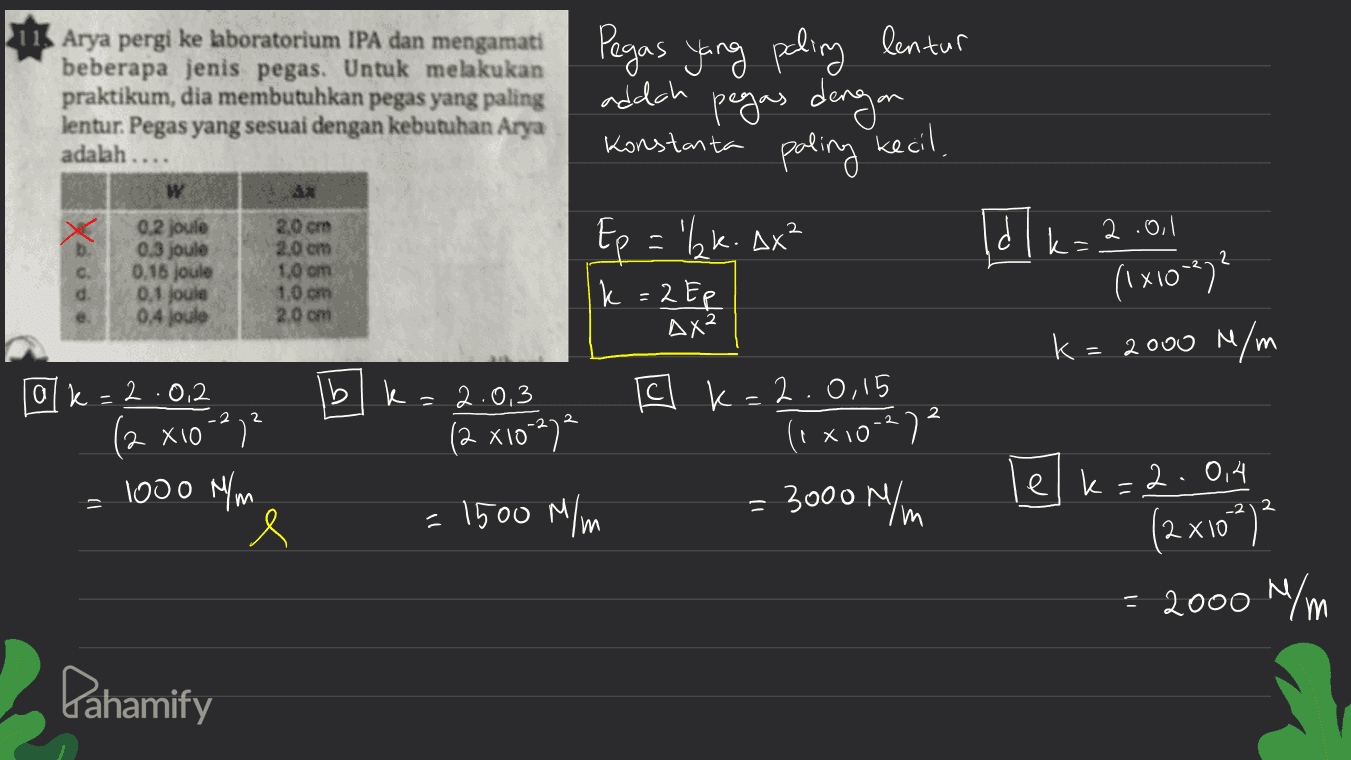 11 Arya pergi ke laboratorium IPA dan mengamati
beberapa jenis pegas. Untuk melakukan
praktikum, dia membutuhkan pegas yang paling
lentur. Pegas yang sesuai dengan kebutuhan Arya
adalah ....
W Δx
0,2 joule 2,0 cm
b. 0,3 joule 2,0 cm
c. 0,15 joule 1,0 cm
d. 0,1 joule 1,0 cm
e. 0,4 joule 2,0 cm
Pegas yang paling lentur
adalah pegas dengan
konstanta paling kecil.
Ep = 1/2 k. Δx²
k = 2 Ep / Δx²
a k = 2 . 0,2 / (2 x10⁻²)²
= 1000 N/m
b k = 2.0,3 / (2 x10⁻²)²
= 1500 N/m
c k = 2. 0,15 / (1 x 10⁻²)²
= 3000 N/m
d k = 2 .0,1 / (1x10⁻²)²
k = 2000 N/m
e k = 2. 0,4 / (2x10⁻²)²
= 2000 N/m
Pahamify